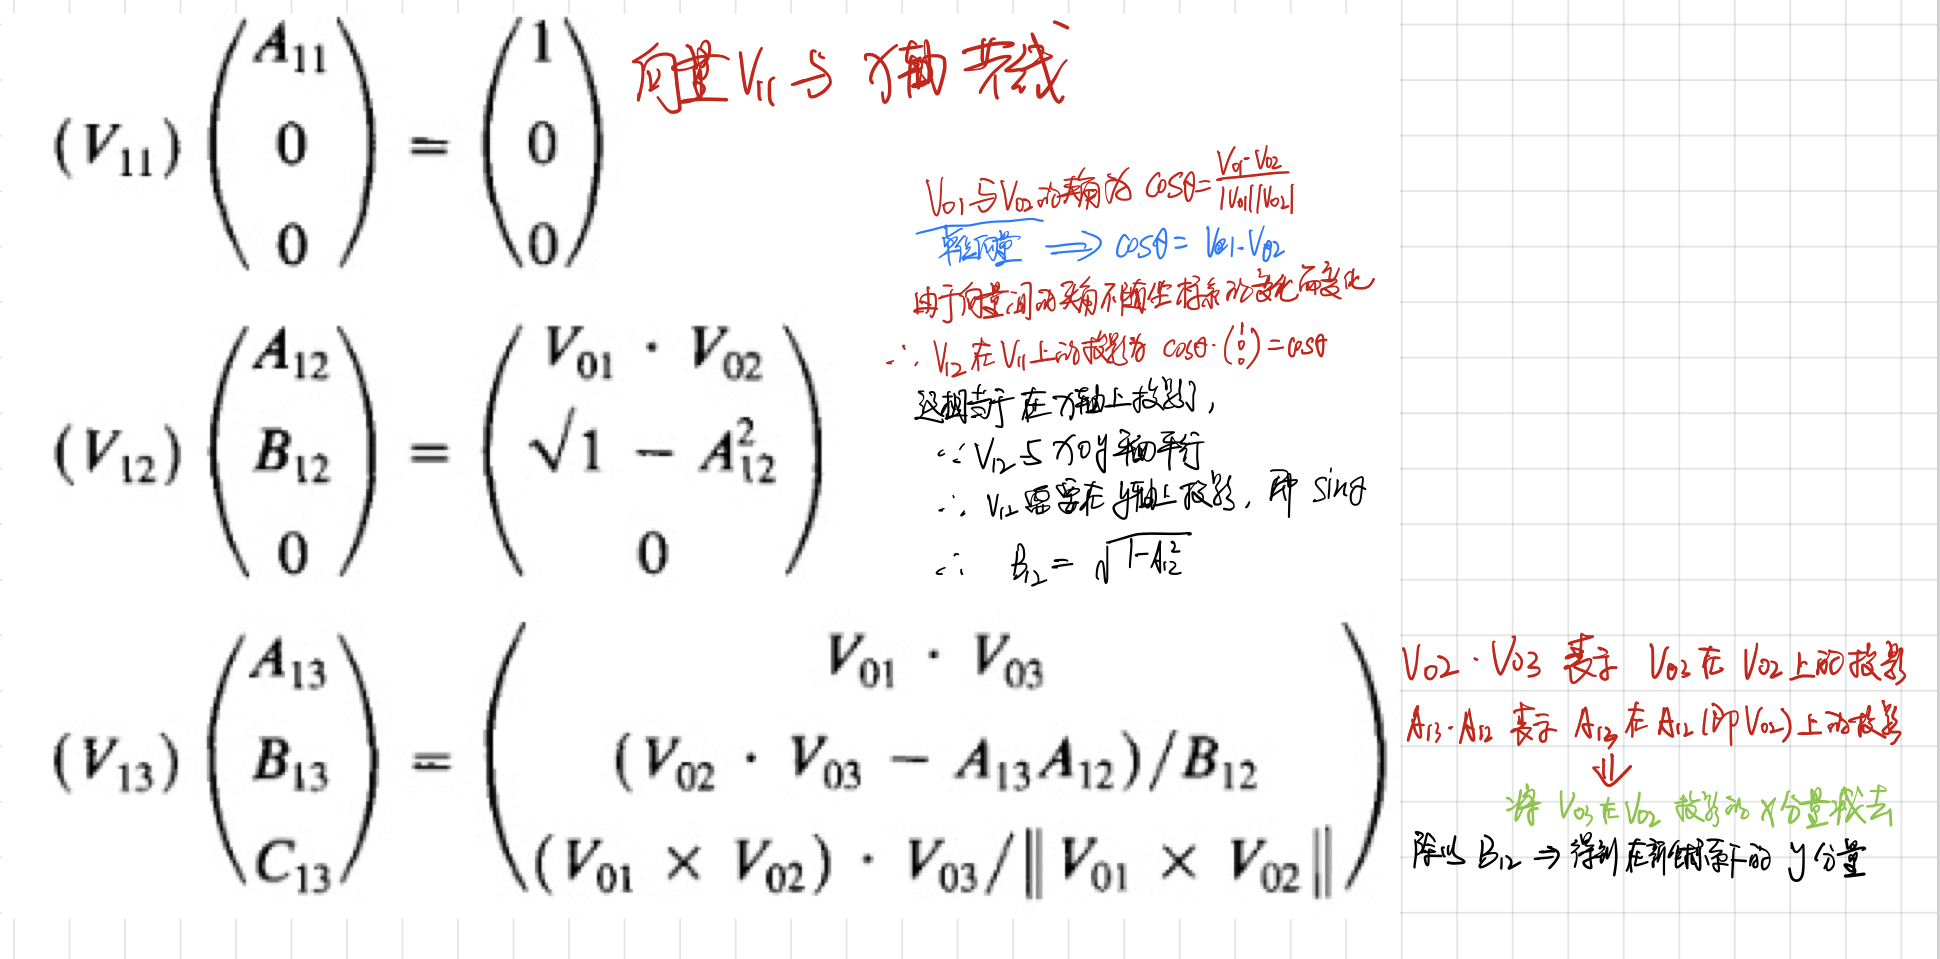 (V₁₁) (A₁₁ 0 0) = (1 0 0)
向量V₁₁与x轴共线
V₀₁与V₀₂的夹角为 cosθ = V₀₁·V₀₂ / |V₀₁||V₀₂|
单位向量 ⟹ cosθ = V₀₁·V₀₂
由于向量间的夹角不随坐标系的变化而变化
∴ V₁₂在V₁₁上的投影为 cosθ·(1 0 0) = cosθ
(V₁₂) (A₁₂ B₁₂ 0) = (V₀₁ · V₀₂ √1 − A₁₂² 0)
这相当于在x轴上投影了,
∵ V₁₂与xoy平面平行
∴ V₁₂需要在y轴上投影, 即 sinθ
∴ B₁₂ = √1-A₁₂²
(V₁₃) (A₁₃ B₁₃ C₁₃) = (V₀₁ · V₀₃ (V₀₂ · V₀₃ − A₁₃A₁₂)/B₁₂ (V₀₁ × V₀₂) · V₀₃/‖V₀₁ × V₀₂‖)
V₀₂·V₀₃ 表示 V₀₃在V₀₂上的投影
A₁₃·A₁₂ 表示 A₁₃在A₁₂(即V₀₂)上的投影
⇓
将V₀₃在V₀₂投影的x分量减去
除以B₁₂ ⇒ 得到在新坐标系下的y分量